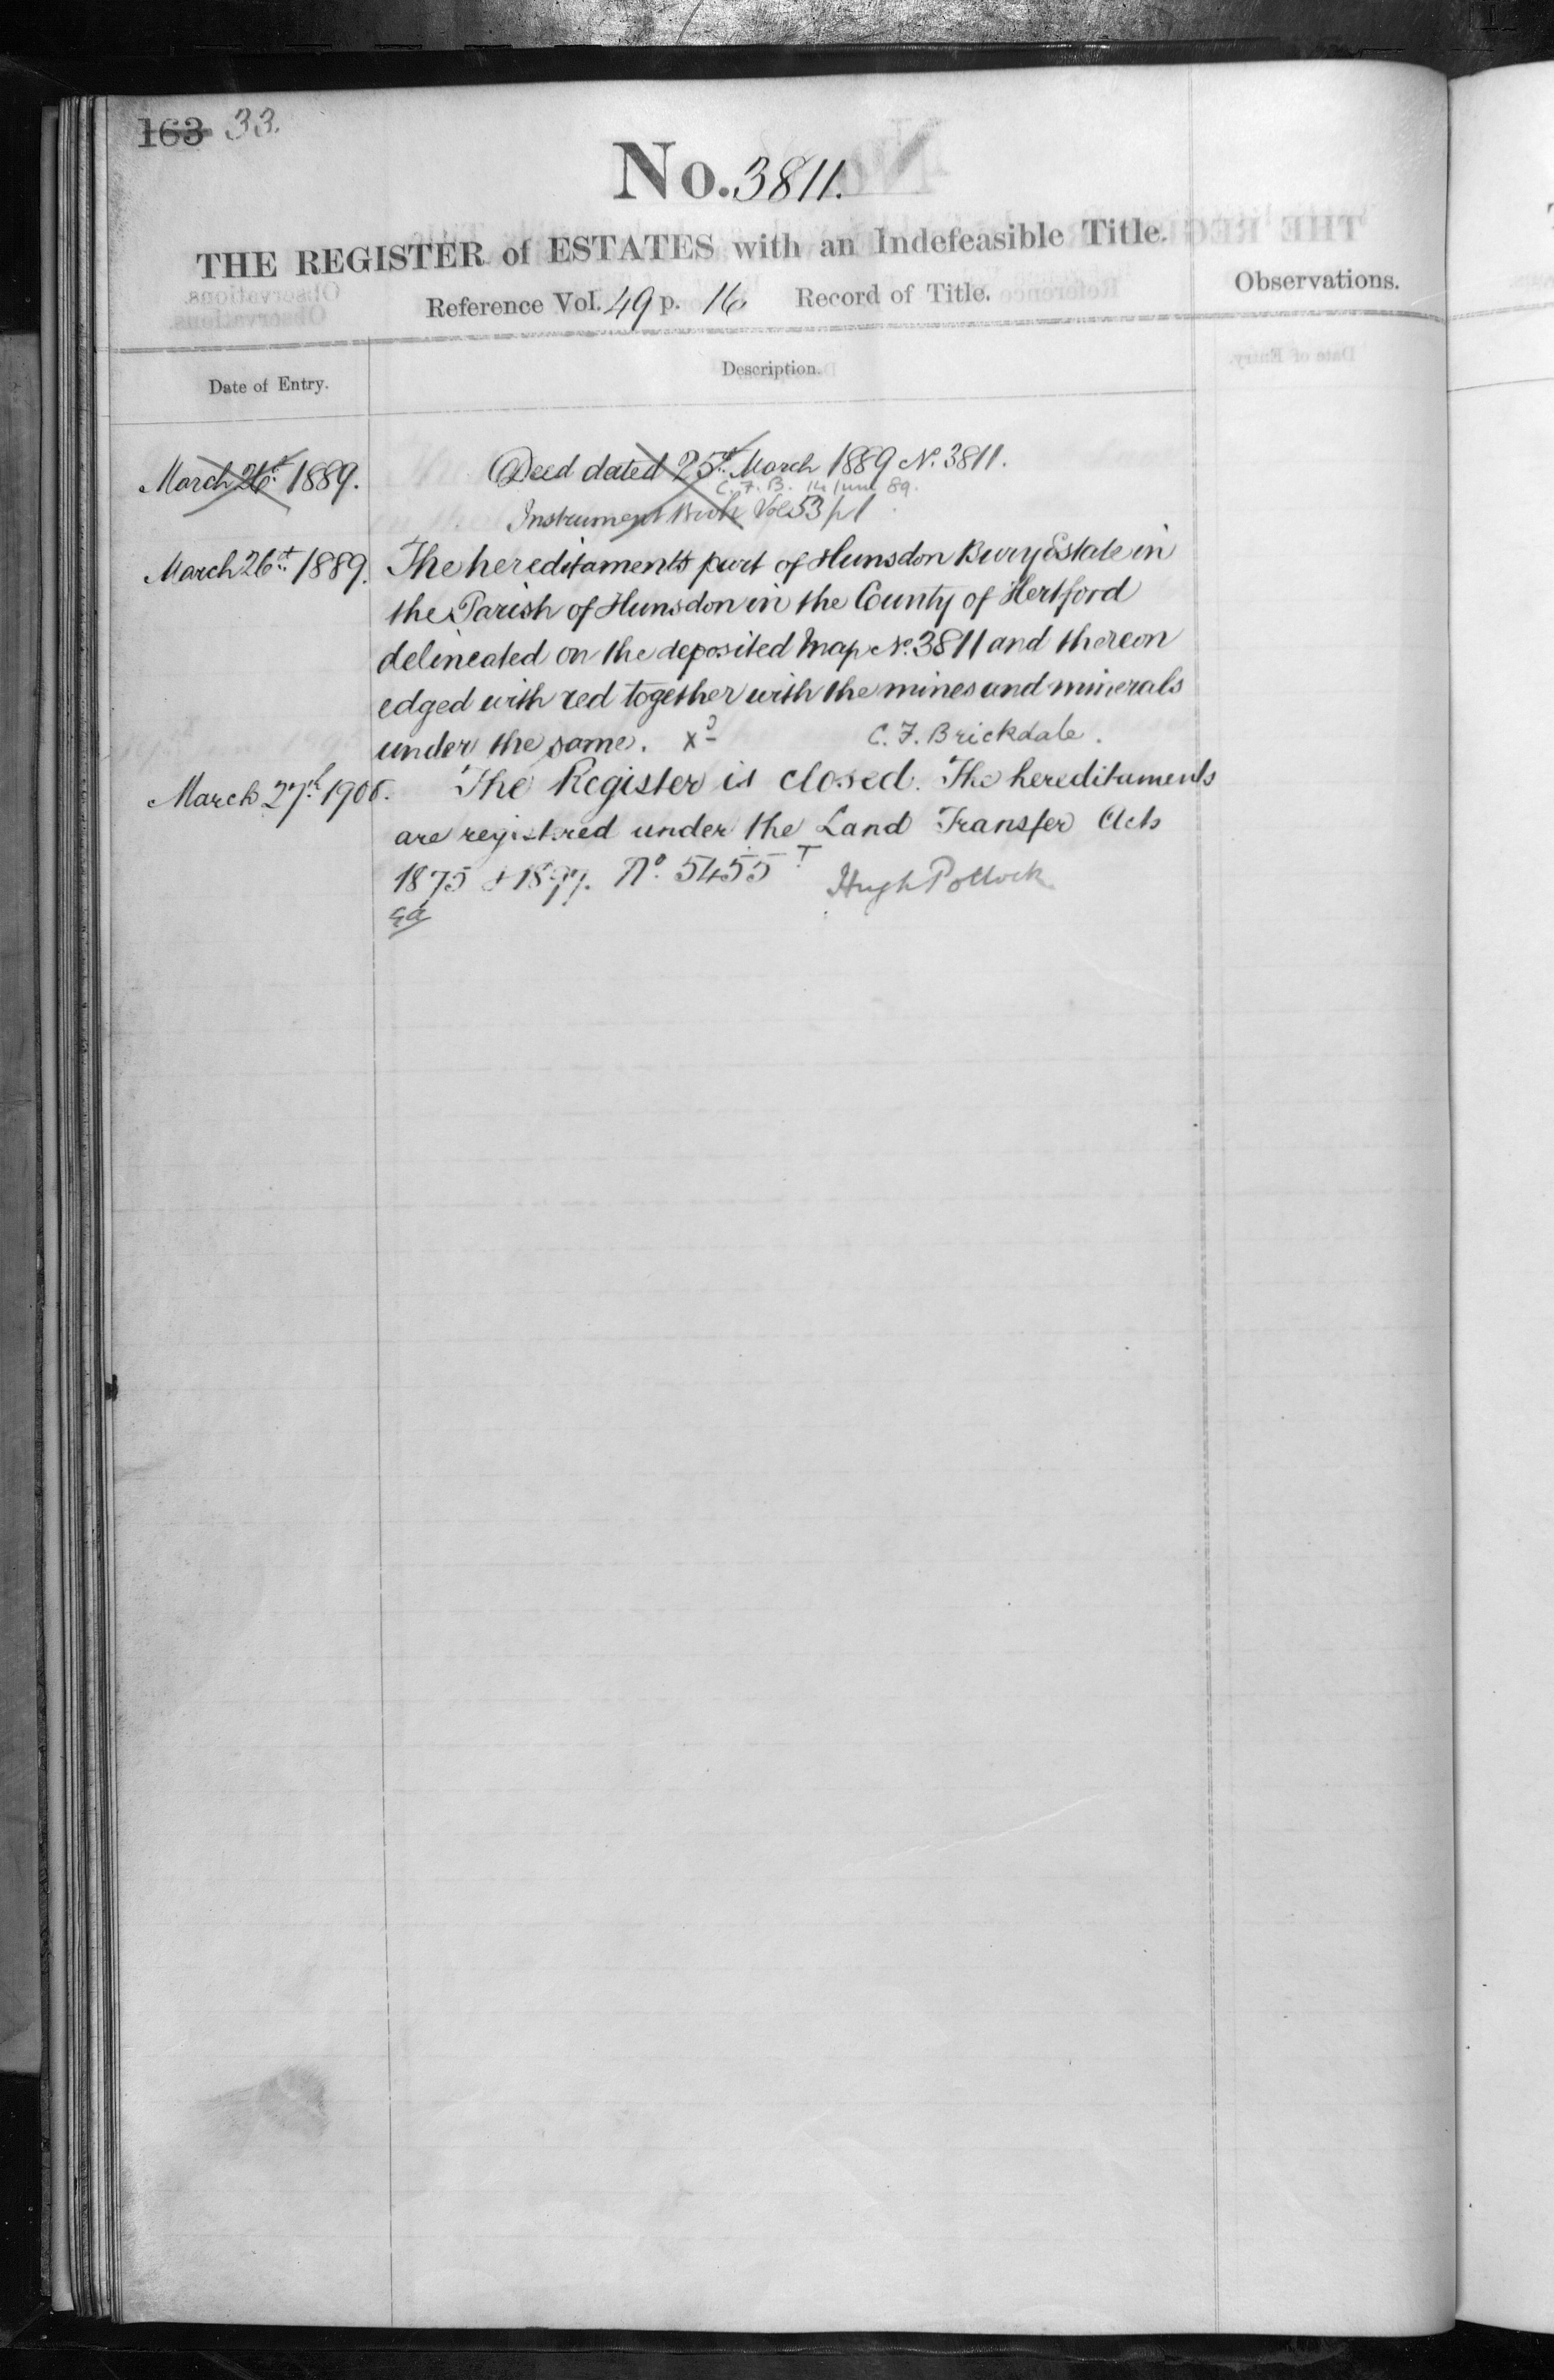 163 33.
No. 3811.
THE REGISTER of ESTATES with an Indefeasible Title.
Reference Vol. 49 p. 16 Record of Title.
Observations.
Date of Entry.
Description.
March 26th 1889.
Deed dated 25th March 1889 No. 3811.
C. F. B. 14 June 89.
Instrument Book Vol 53 p 1
March 26th 1889. The hereditaments part of Hunsdon Bury Estate in
the Parish of Hunsdon in the County of Hertford
delineated on the deposited Map No. 3811 and thereon
edged with red together with the mines and minerals
under the same. C. F. Brickdale.
March 27th 1906. The Register is closed. The hereditaments
are registered under the Land Transfer Acts
1875 & 1897. No. 5455 Hugh Pollock